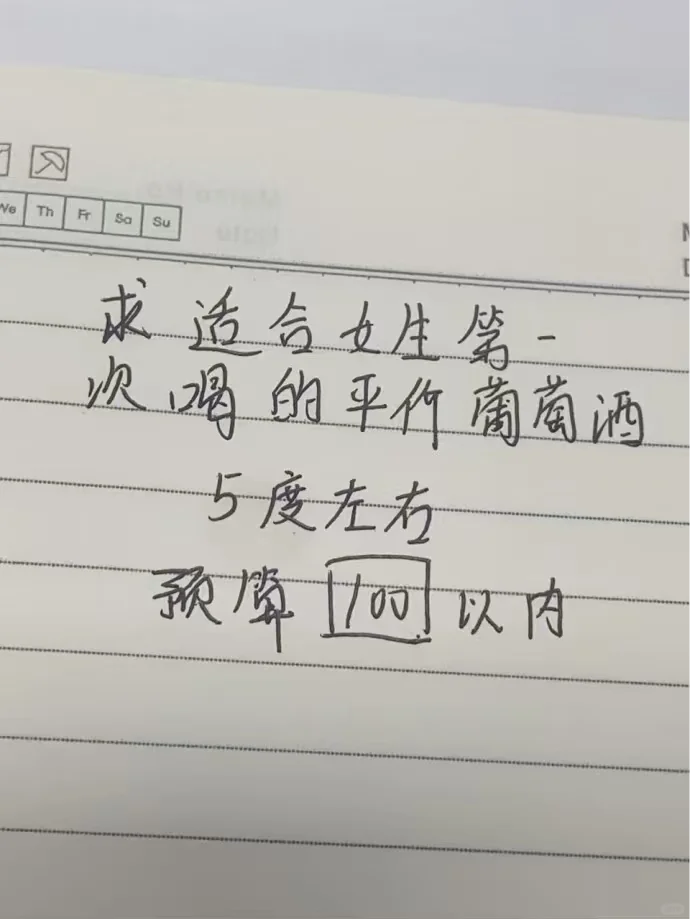 We Th Fr Sa Su
求适合女生第一
次喝的平价葡萄酒
5度左右
预算 100 以内